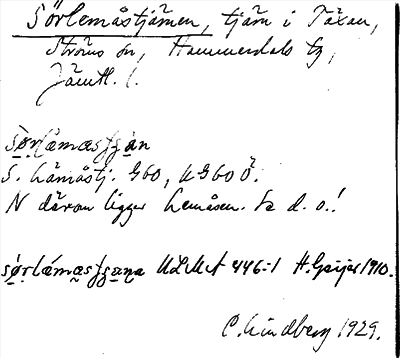 Sörlemåstjärnen, tjärn i Täxan,
Ströms sn, Hammerdals tg,
Jämtl. l.
S. Låmåstj. G60, KG60 Ö.
N därom ligger Lemåsen. Se d. o.!
ULMA 446:1 H. Geijer 1910.
C. Lindberg 1929.